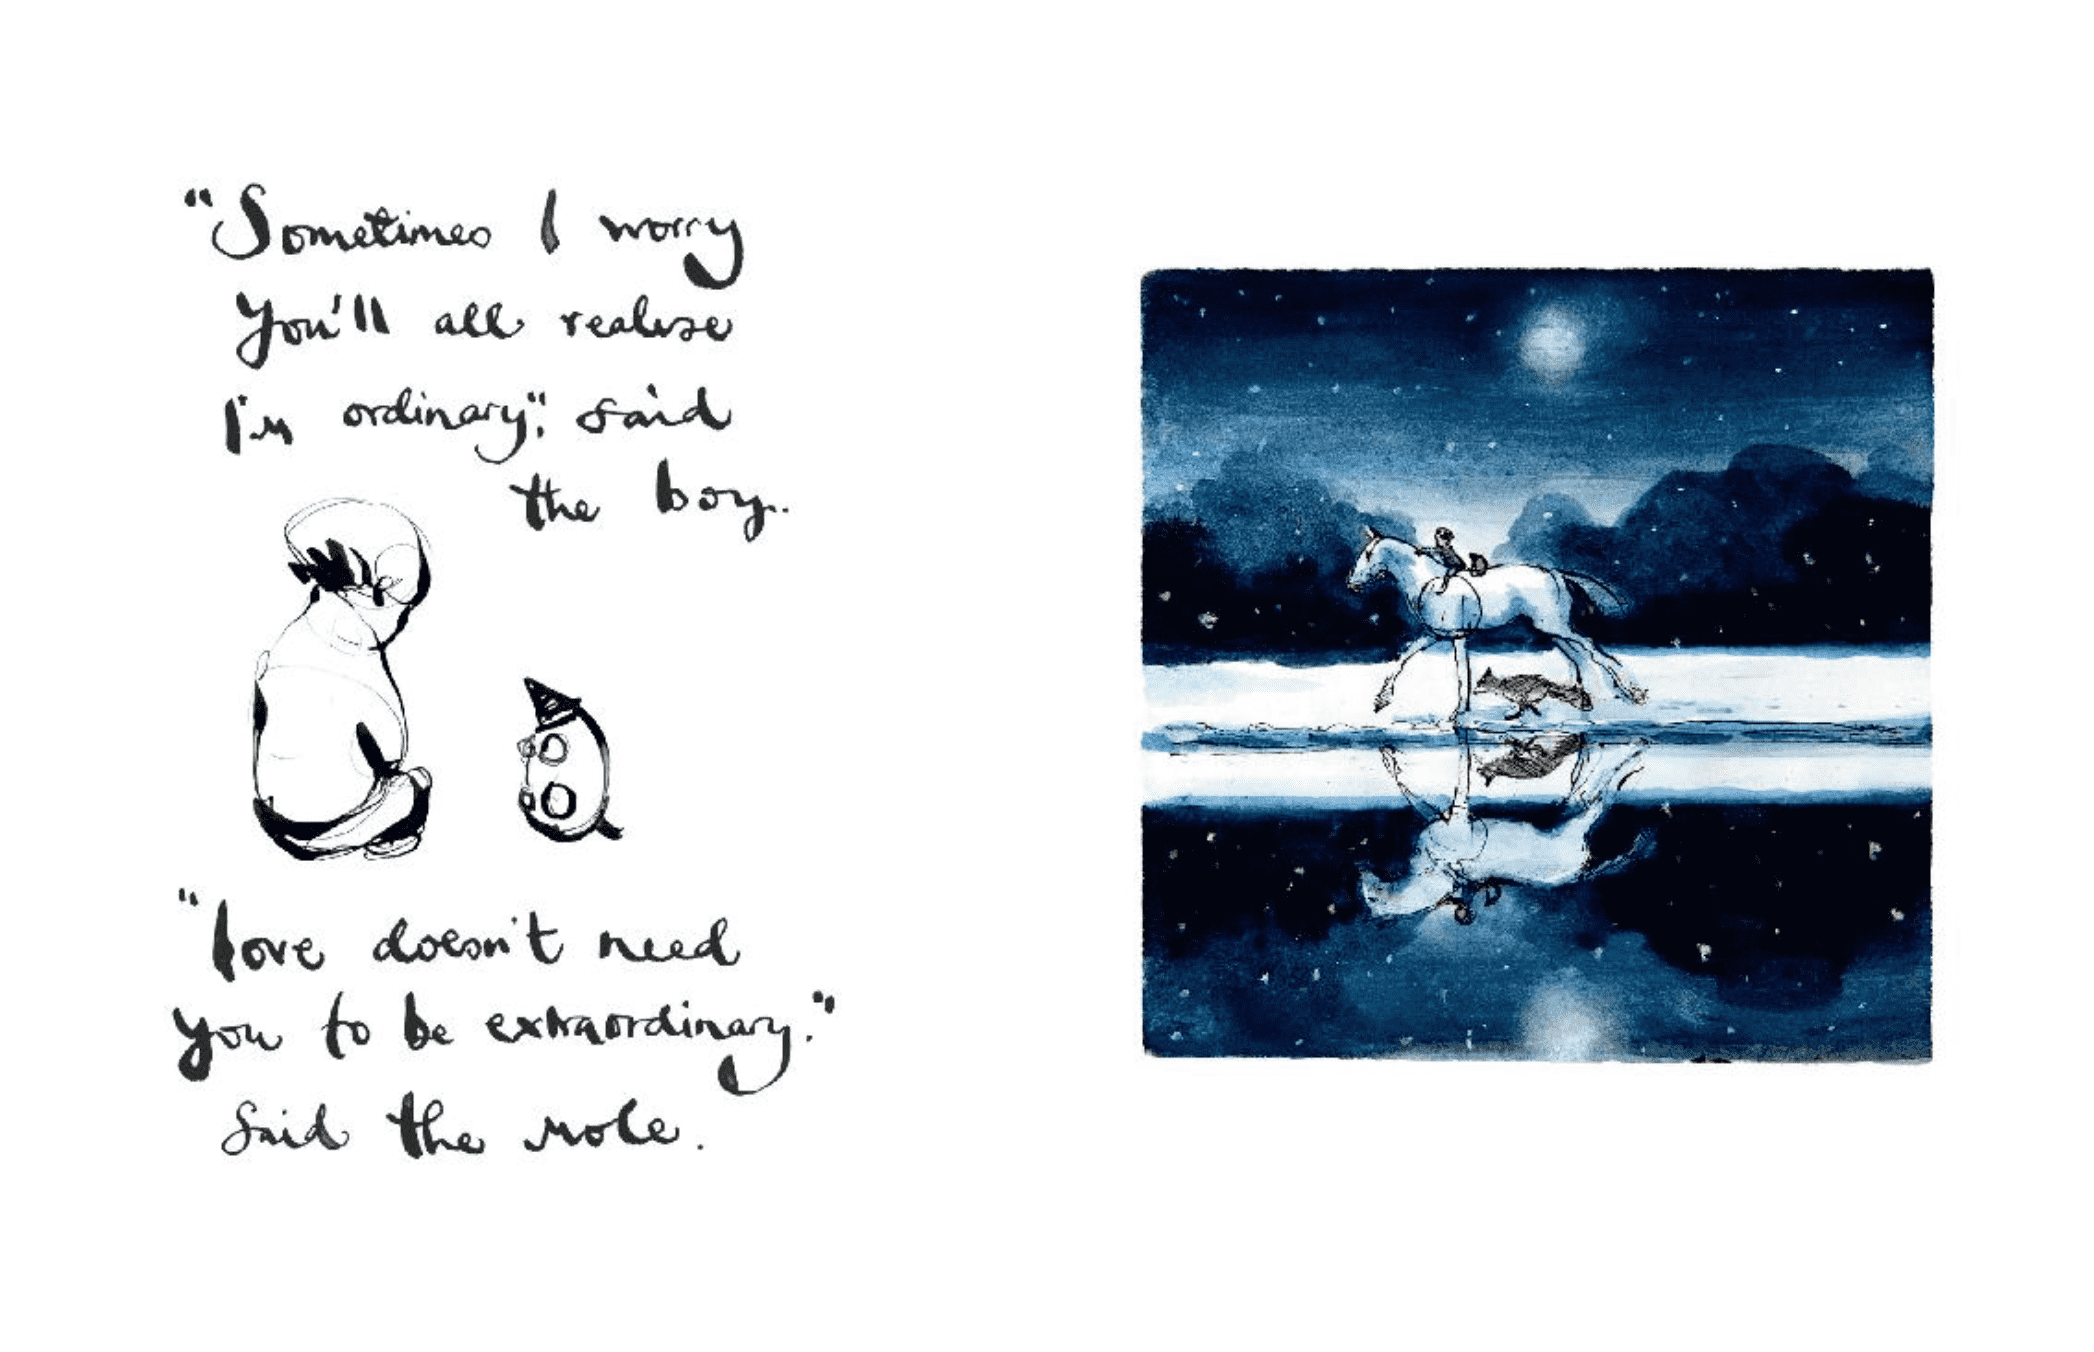 "Sometimes I worry
you'll all realise
I'm ordinary," said
the boy.
"love doesn't need
you to be extraordinary."
said the mole.